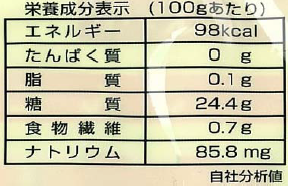 栄養成分表示 (100gあたり)
エネルギー 98kcal
たんぱく質 0 g
脂質 0.1g
糖質 24.4g
食物繊維 0.7g
ナトリウム 85.8mg
自社分析値